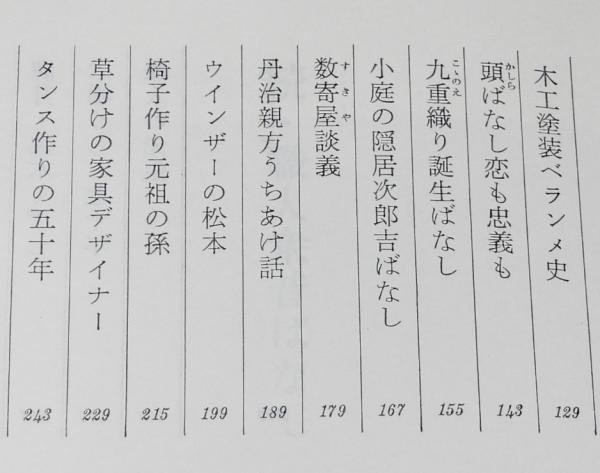 木工塗装ベランメ史 129
頭ばなし恋も忠義も 143
九重織り誕生ばなし 155
小庭の隠居次郎吉ばなし 167
数寄屋談義 179
丹治親方うちあけ話 189
ウインザーの松本 199
椅子作り元祖の孫 215
草分けの家具デザイナー 229
タンス作りの五十年 243